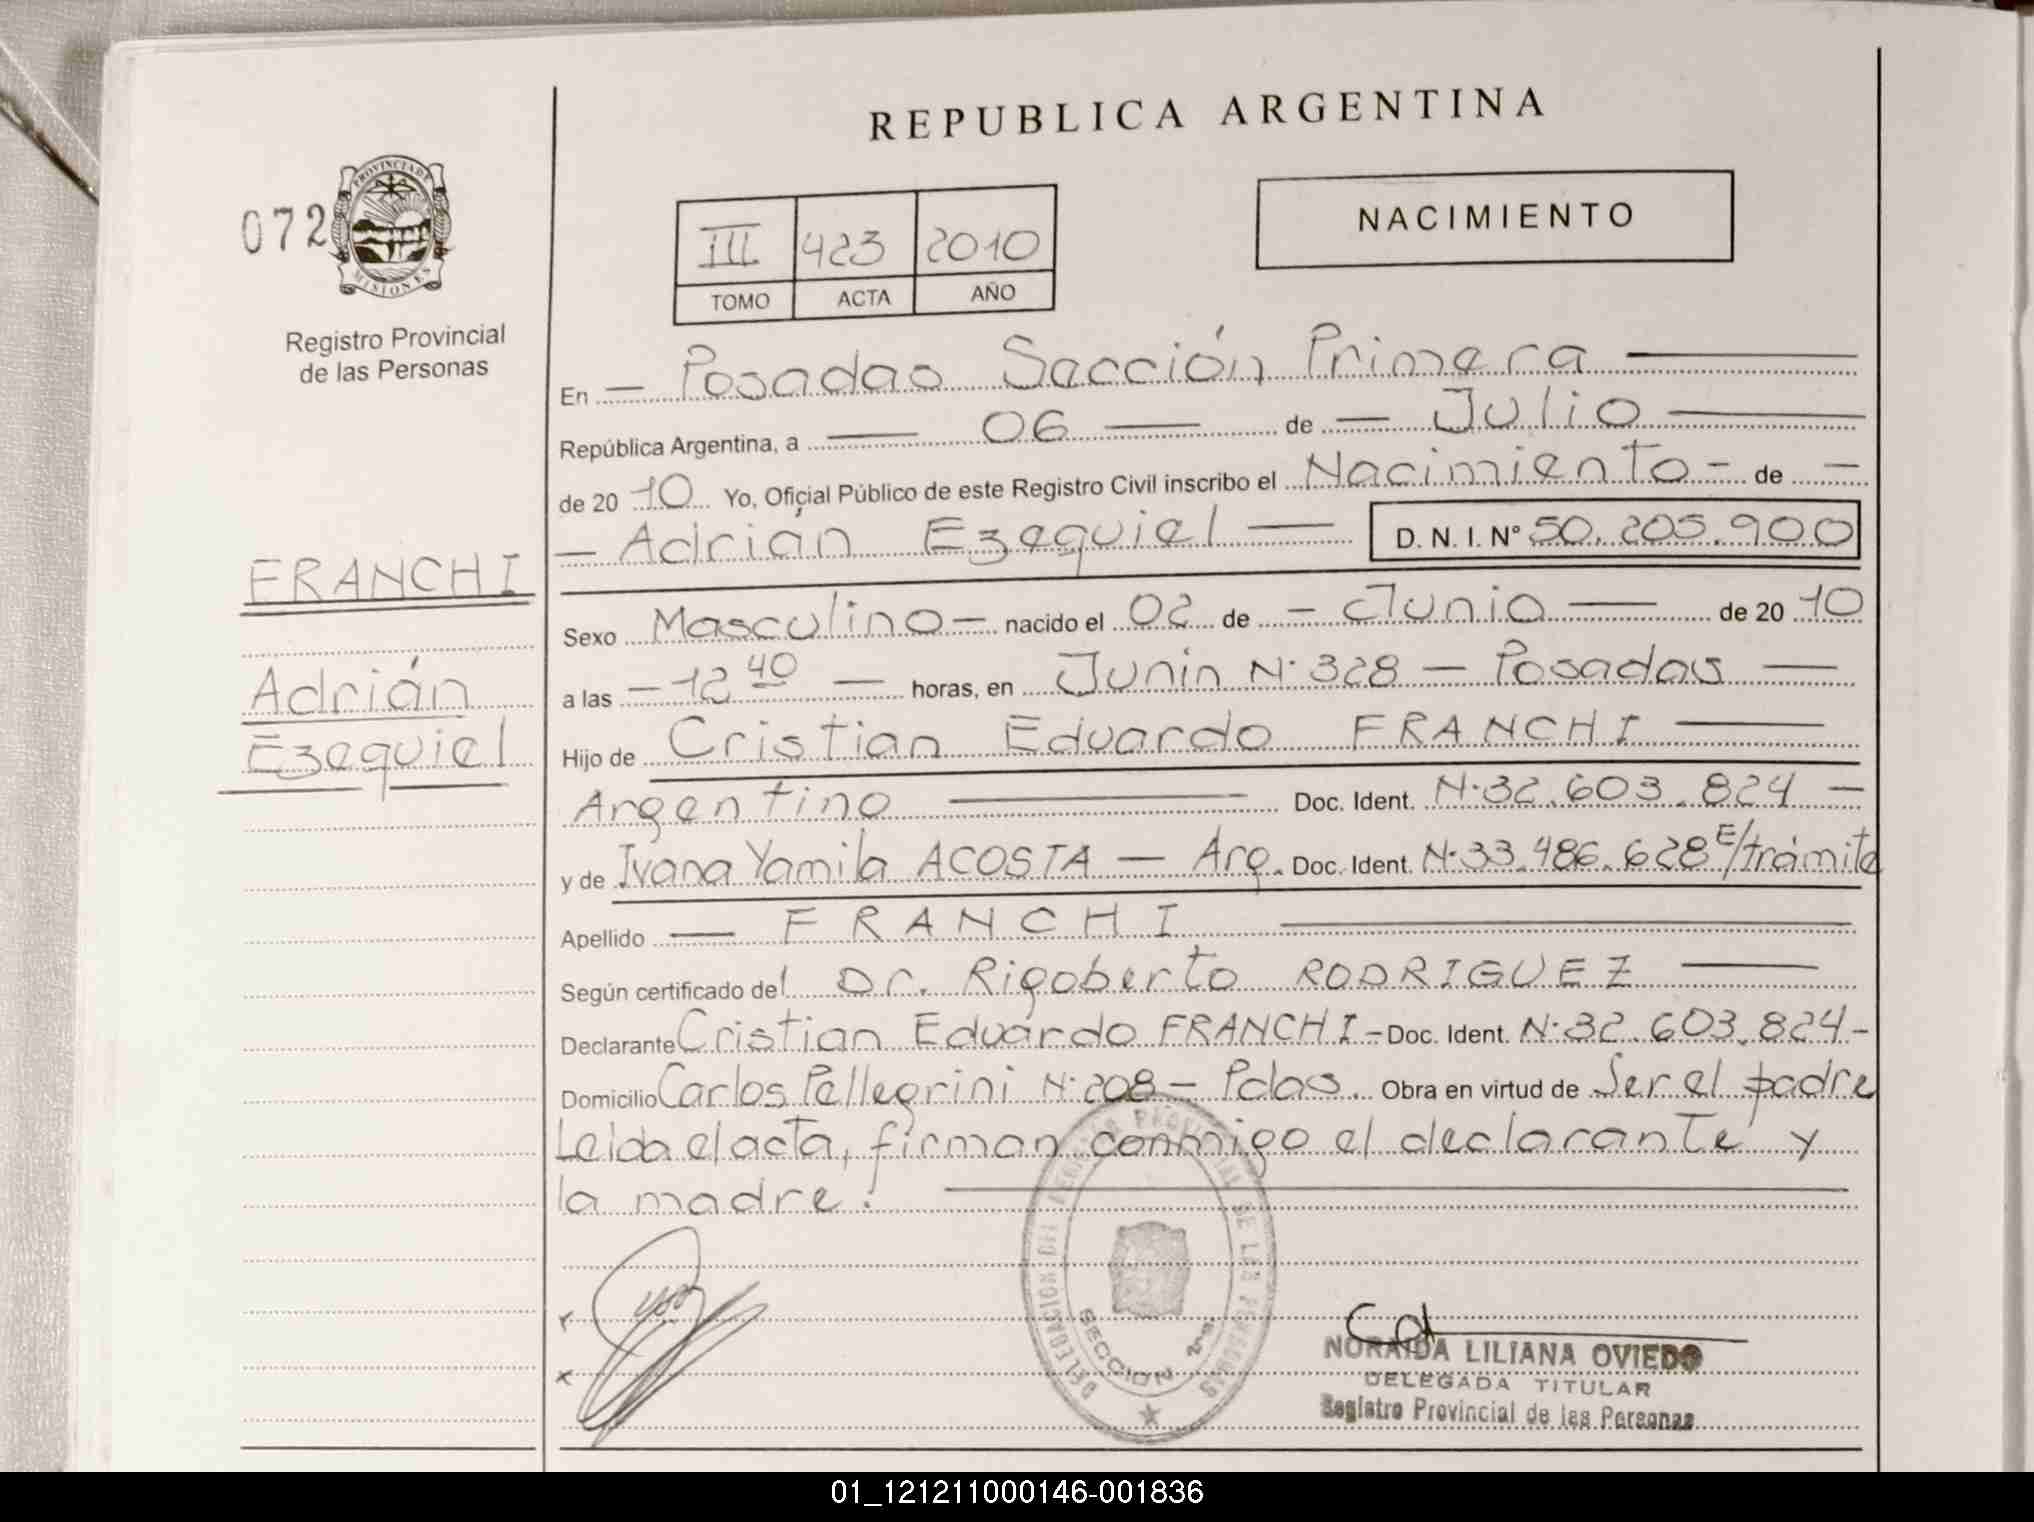 REPUBLICA ARGENTINA
072
PROVINCIA DE
MISIONES
Registro Provincial
de las Personas
III 423 2010
TOMO ACTA AÑO
NACIMIENTO
En — Posadas Sección Primera —
República Argentina, a — 06 — de — Julio —
de 20 10 Yo, Oficial Público de este Registro Civil inscribo el Nacimiento - de —
— Adrián Ezequiel — D. N. I. Nº 50.205.900
FRANCHI
Adrián
Ezequiel
Sexo Masculino — nacido el 02 de — Junio — de 20 10
a las — 12 40 — horas, en Junin N· 328 — Posadas —
Hijo de Cristian Eduardo FRANCHI —
Argentino — Doc. Ident. N· 32.603.824 —
y de Ivana Yamila ACOSTA — Arg. Doc. Ident. N· 33.486.628 E/trámite
Apellido — FRANCHI —
Según certificado del Dr. Rigoberto RODRIGUEZ —
Declarante Cristian Eduardo FRANCHI - Doc. Ident. N· 32.603.824 -
Domicilio Carlos Pellegrini N· 208 — Pdas. Obra en virtud de Ser el padre
Leida el acta, firman conmigo el declarante y
la madre. —
DELEGACION DEL REGISTRO PROVINCIAL DE LAS PERSONAS
SECCION
NORAIDA LILIANA OVIEDO
DELEGADA TITULAR
Registro Provincial de las Personas
01_121211000146-001836